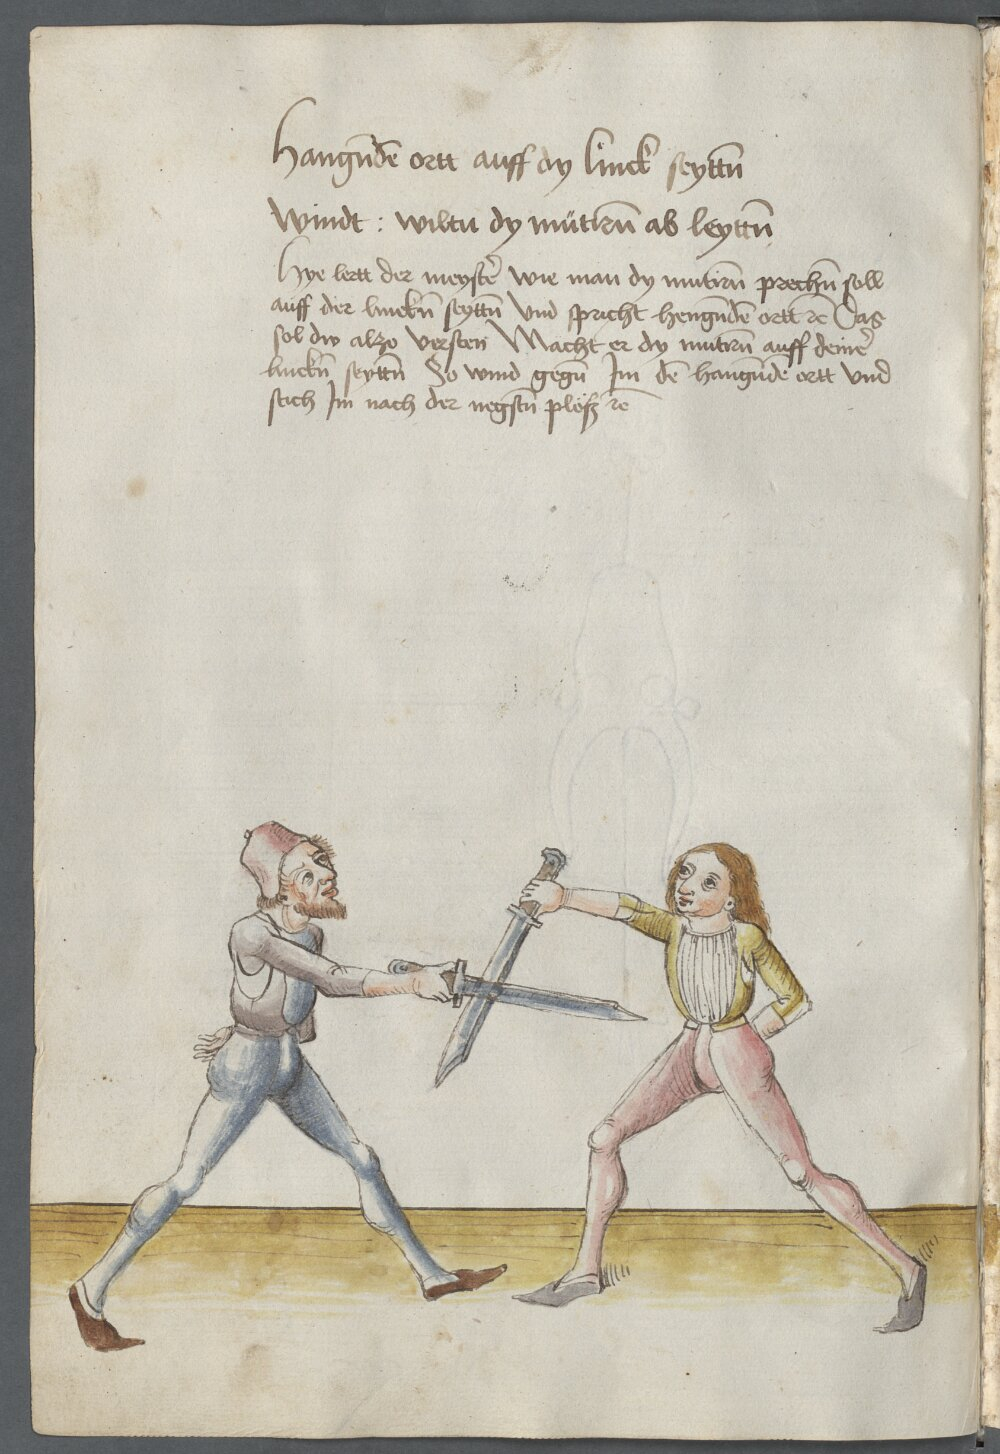 Hangu̅de̅ ortt auff dy linck seytt̅n
Windt : wiltu dy mütir̅n ab leytt̅n
Hye lertt der meyster wie man dy mutir̅n prech̅n soll
auff der linck̅n seytt̅n Vnd spricht hengu̅de̅ ortt rc Das
sol dw alzo versten Macht er dy mutir̅n auff deiner
linck̅n seytt̅n So wind geg̅n Im de̅ hangu̅de ortt vnd
stich Im nach der negst̅n plöß rc